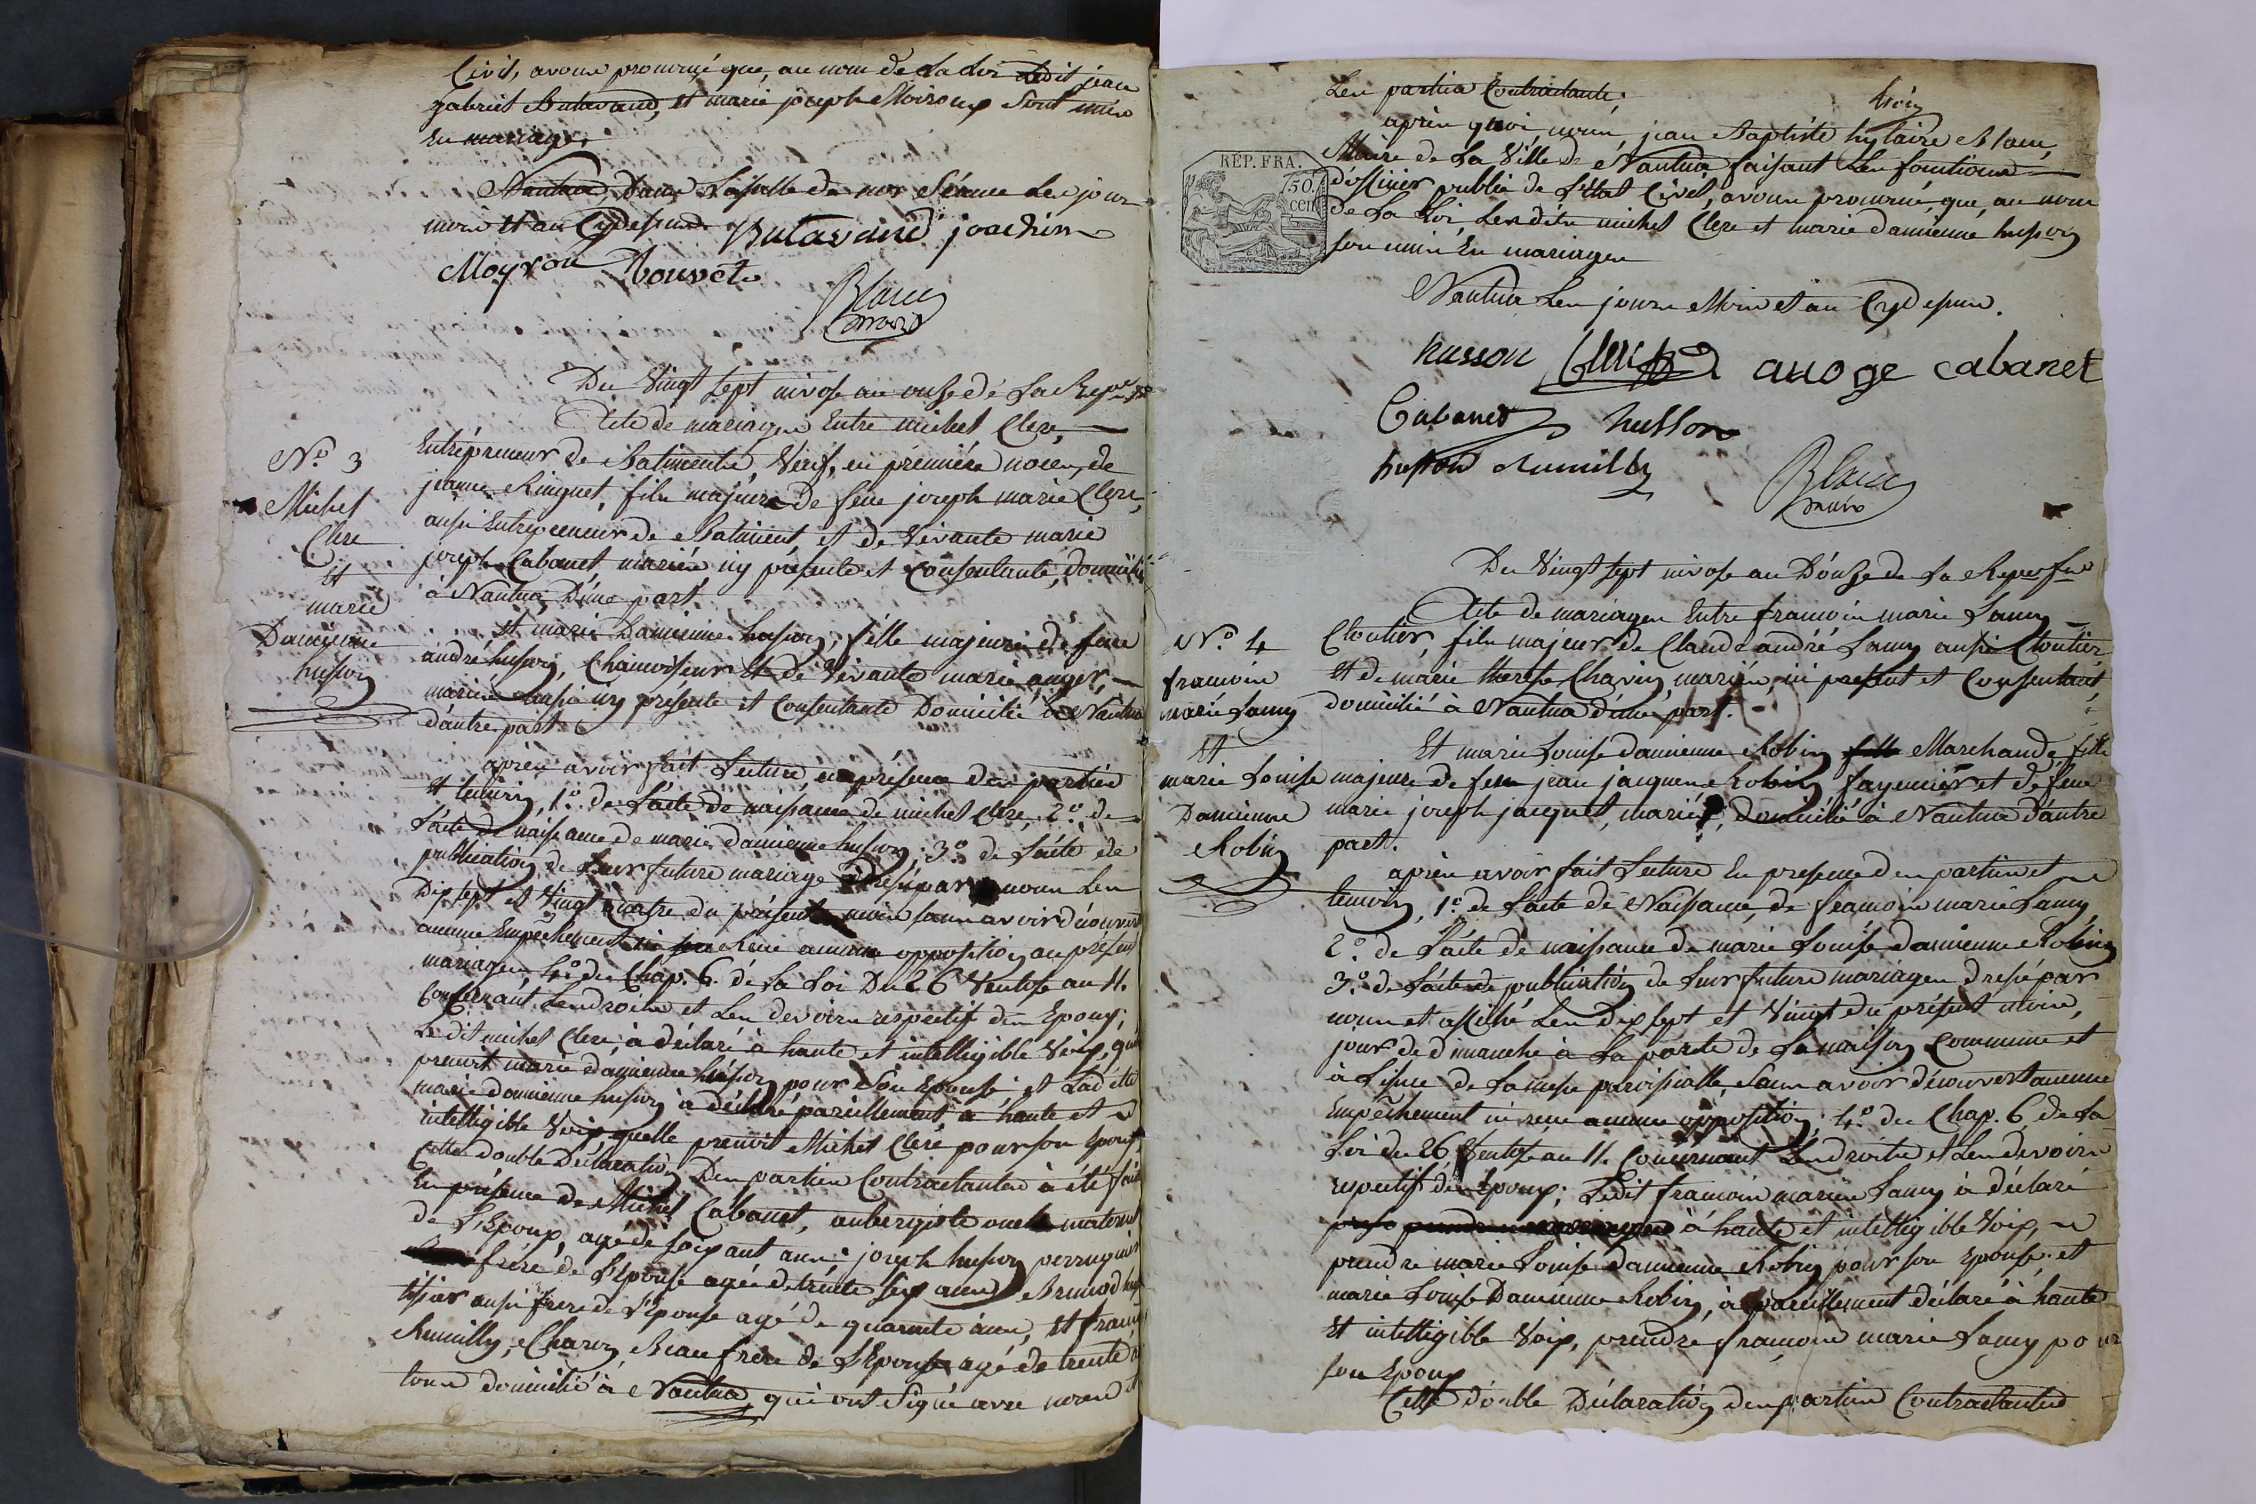 Civil, avons prononcé que, au nom de la loi ledit jean
gabriel Butavand, et marie joseph Moiroux sont unis
En mariage,
Nantua, Dans la salle de nos séance les jour
mois et an Cydessus Butavand joachim
Moyrou Bouvet
Blanc
maire
Du Vingt sept nivose an onze de la Repue fse
Acte de mariages Entre michel Clere,
Entrepreneur de Batiments Veuf, en première noces, de
N.º 3
jeanne Ringuet, fils majeure de feue joseph marie Clere,
Michel
aussi Entrepreneur de Batiment et de Vivante marie
Clere
joseph Cabanet mariés icy présente et Consentante, domicilié
Et
à Nantua, D'une part
marie
Et marie Damienne husson, fille majeure de feue
Damienne
andré husson, Chamoiseur Et de Vivante marie auger,
husson
mariés aussi icy présente et Consentante Domicilié à Nantua
d'autre part
après avoir fait Lecture en présence des parties
et temoins, 1º. de l'acte de naissance de michel Clere, 2º. de
l'acte de naissance de marie damienne husson; 3º de l'acte de
publication de Leur future mariage Dressé par nous Les
Dix sept et Vingt quatre du présent mois sans avoir découvert
aucune Empêchement ni reçue aucune opposition au présent
mariages, 4º du Chap. 6. de la Loi Du 26 Ventose an 11.
Concernant Les droits et Les devoirs respectif des Epoux;
Ledit michel Clere, à déclaré à haute et intelligible Voix, qu'il
prenoit marie damienne husson pour Son Epouse; et Ladite
marie damienne husson à déclaré pareillement à haute et
intelligible Voix, quelle prenoit Michel Clere pour son Epoux
Cette double Déclaration Des parties Contractantes à été faite
En présence de Michel Cabanet, aubergiste oncle maternel
de L'Epoux, agé de soixant ans: joseph husson perruquier
frère de L'Epouse agée de trente six ans Bernard hus
tissier aussi frere de L'Epouse agé de quarante ans, Et franç
Rumilly, Charon, Beau frère de L'Epouse agé de trente
tous domicilié à Nantua, qui ont Signé avec nous et
Les parties Contractante.
husson
après quoi, nous, jean Baptiste hylaire Blanc,
Maire de La Ville de Nantua faisant Les fonctions
REP. FRA.
50.
cen
d'officier public de l'Etat Civil, avons prononcé, que, au nom
de La Loi, Lesdits michel Clere et marie damienne husson
sont unis En mariages
Nantua Les jours Mois et an Cydessus.
husson Clere auoge cabanet
Cabanet husson
husson Rumilly
Blanc
maire
Du Vingt sept nivose an Donze de la Repue fse
Acte de mariages Entre françois marie Lamy
N.º 4
Cloutier, fils majeur de Claude andré Lamy aussi Cloutier
françois
Et de marie therese Chavin, mariés, ici présent et Consentant
marie Lamy
domicilié à Nantua d'une part.
Et
Et marie Louise damienne Robin fille Marchande, fille
marie Louise
majeure de feu jean jacques Robin fayencier et de feue
Damienne
marie joseph jacquet, mariés, domicilié à Nantua d'autre
Robin
part.
après avoir fait Lecture En presence des parties et
temoins, 1º. de l'acte de Naissance, de françois marie Lamy
2º. de l'acte de naissance de marie Louise damienne Robin
3º. de l'acte de publication de Leur future mariages dressé par
nous et affiché Les Dix sept et Vingt du présent mois,
jour de dimanche à la porte de La maison Commune et
à L'issue de La messe paroissialle, sans avoir découvert aucune
Empêchement ni reçue aucune opposition; 4º. du Chap. 6. de la
Loi du 26 Ventose an 11. Concernant Les droits et Les devoirs
respectif des Epoux; Ledit françois marie Lamy à déclaré
à haute et intelligible Voix,
prendre marie Louise damienne Robin pour son Epouse; et
marie Louise Damienne Robin, à pareillement déclaré à haute
Et intelligible Voix, prendre françois marie Lamy pour
son Epoux
Cette double Déclaration des parties Contractantes